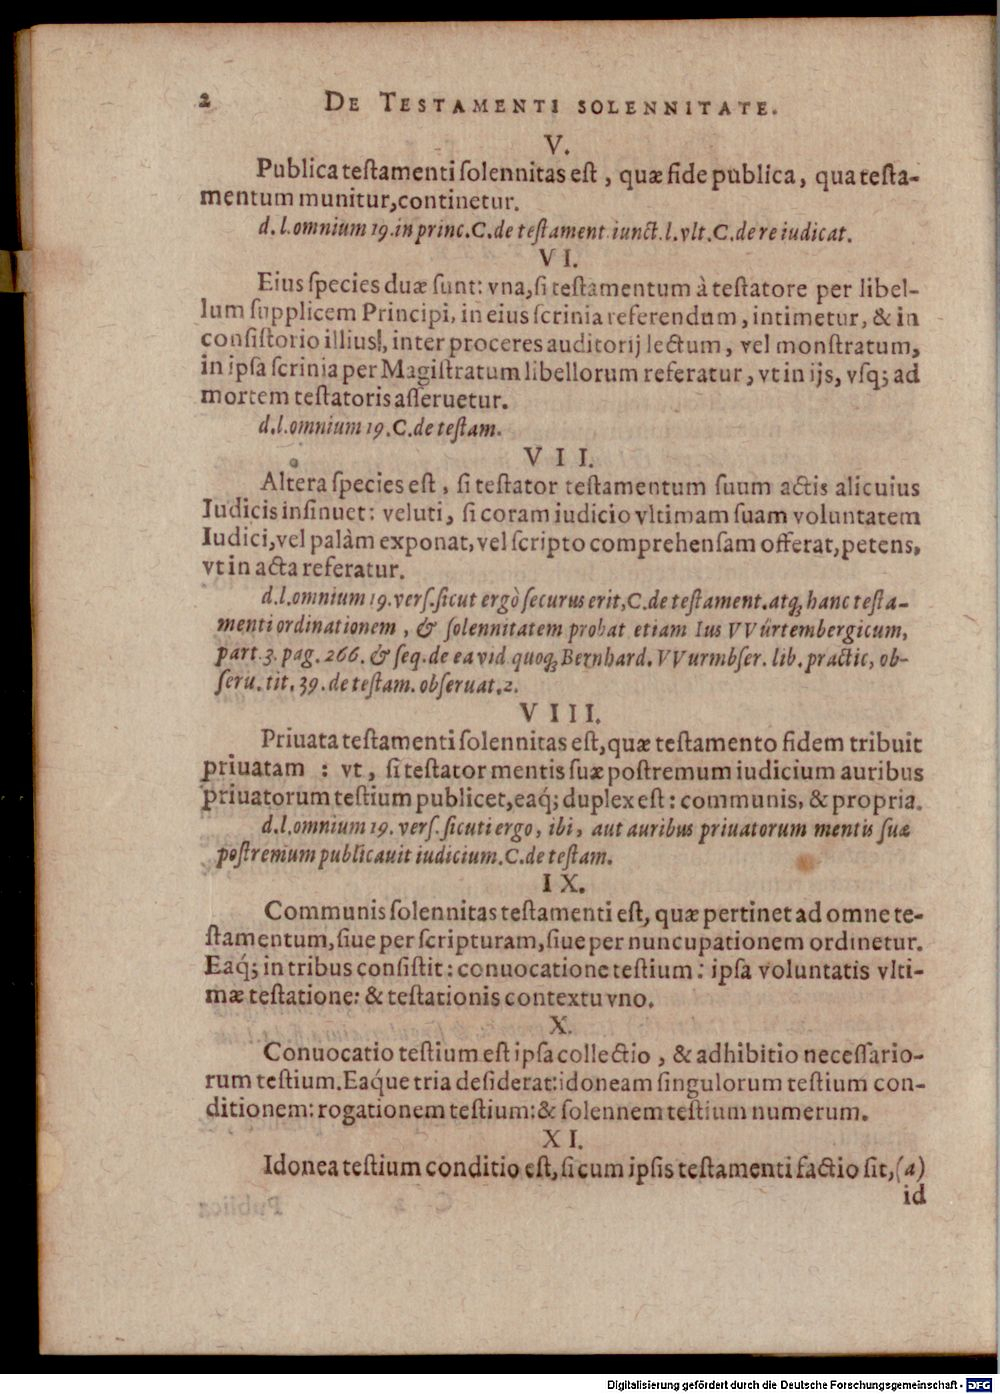 2 DE TESTAMENTI SOLENNITATE.
V.
Publica testamenti solennitas est, quæ fide publica, qua testa-
mentum munitur, continetur.
d. l. omnium 19. in princ. C. de testament. iunct. l. vlt. C. de re iudicat.
VI.
Eius species duæ sunt: vna, si testamentum à testatore per libel-
lum supplicem Principi, in eius scrinia referendum, intimetur, & in
consistorio illius, inter proceres auditorij lectum, vel monstratum,
in ipsa scrinia per Magistratum libellorum referatur, vt in ijs, vsq; ad
mortem testatoris asseruetur.
d. l. omnium 19. C. de testam.
VII.
Altera species est, si testator testamentum suum actis alicuius
Iudicis insinuet: veluti, si coram iudicio vltimam suam voluntatem
Iudici, vel palàm exponat, vel scripto comprehensam offerat, petens,
vt in acta referatur.
d. l. omnium 19. vers. sicut ergò securus erit, C. de testament. atq; hanc testa-
menti ordinationem, & solennitatem probat etiam Ius VVürtembergicum,
part. 3. pag. 266. & seq. de ea vid quoq; Bernhard. VVurmbser. lib. practic, ob-
seru. tit. 39. de testam. obseruat. 2.
VIII.
Priuata testamenti solennitas est, quæ testamento fidem tribuit
priuatam : vt, si testator mentis suæ postremum iudicium auribus
priuatorum testium publicet, eaq́; duplex est: communis, & propria.
d. l. omnium 19. vers. sicuti ergo, ibi, aut auribus priuatorum mentis suæ
postremum publicauit iudicium. C. de testam.
IX.
Communis solennitas testamenti est, quæ pertinet ad omne te-
stamentum, siue per scripturam, siue per nuncupationem ordinetur.
Eaq́; in tribus consistit: conuocatione testium: ipsa voluntatis vlti-
mæ testatione: & testationis contextu vno.
X.
Conuocatio testium est ipsa collectio, & adhibitio necessario-
rum testium. Eaq́ue tria desiderat: idoneam singulorum testium con-
ditionem: rogationem testium: & solennem testium numerum.
XI.
Idonea testium conditio est, si cum ipsis testamenti factio sit, (a)
id
Digitalisierung gefördert durch die Deutsche Forschungsgemeinschaft - DFG